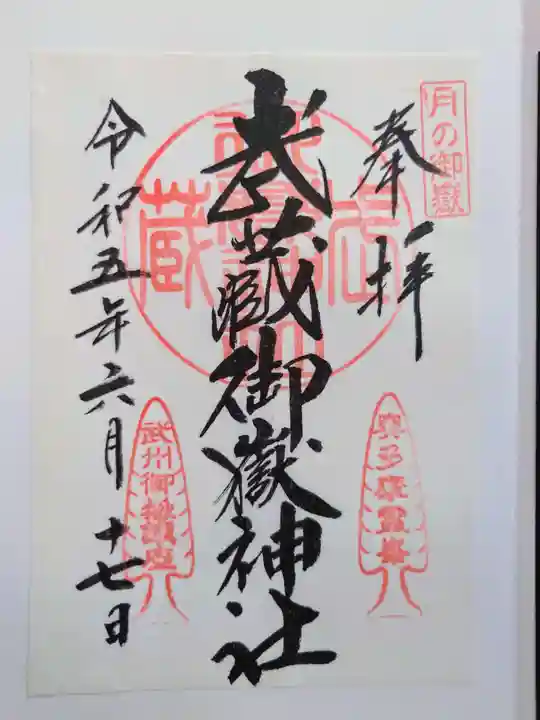 月の御嶽
奉拝
武蔵御嶽神社
令和五年六月十七日
武
蔵
奥多摩霊峯
武州御嶽山